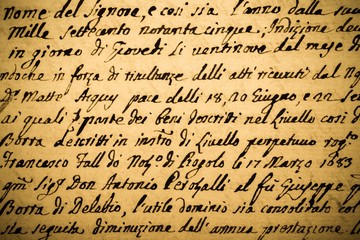 nome del Signore, e così sia l'anno dalla sua
Mille Settecento novanta cinque, Indizione dec
in giorno di Giovedì li ventinove dal mese d
ndoche in forza di risultanze delli atti ricevuti dal N
Dr Matteo Arquy pace delli 18, 20 Giugno, e 22 Se
ai quali è parte dei beni descritti nel Livello così d
Borra descritti in instro di Livello perpetuo rogo
Francesco Fall di Nor di Bogolo li 17 Marzo 1683
qm Sigr Don Antonio Perofalli al fu Giuseppe
Borra di Delebio, l'utile dominio sia consolidato col
sia seguita diminuzione dell'annua prestazione